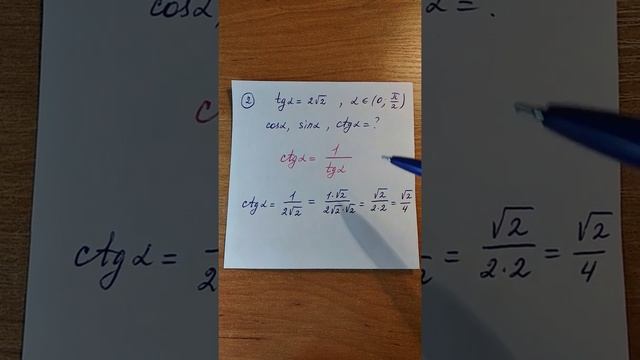 ② tgα = 2√2 , α ∈ (0; π/2)
cosα, sinα, ctgα = ?
ctgα = 1/tgα
ctgα = 1/2√2 = 1·√2/2√2·√2 = √2/2·2 = √2/4